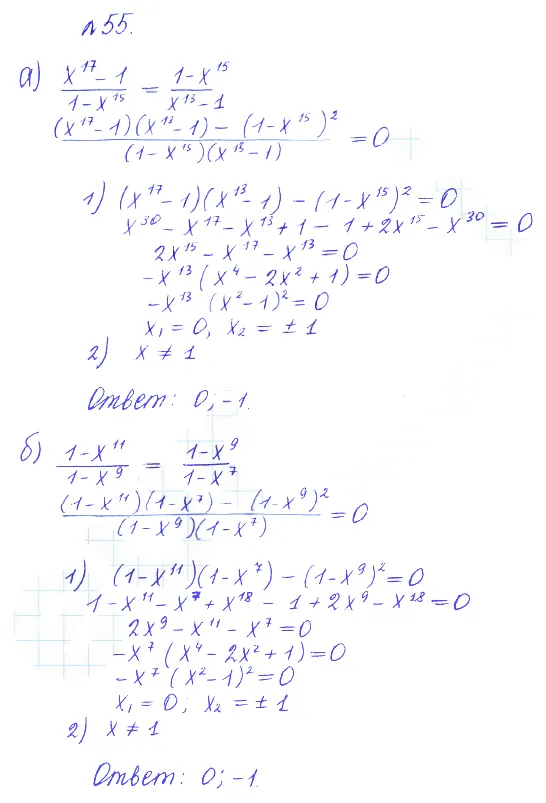 №55.
а) (x¹⁷ - 1)/(1 - x¹⁵) = (1 - x¹⁵)/(x¹³ - 1)
((x¹⁷ - 1)(x¹³ - 1) - (1 - x¹⁵)²)/((1 - x¹⁵)(x¹³ - 1)) = 0
1) (x¹⁷ - 1)(x¹³ - 1) - (1 - x¹⁵)² = 0
x³⁰ - x¹⁷ - x¹³ + 1 - 1 + 2x¹⁵ - x³⁰ = 0
2x¹⁵ - x¹⁷ - x¹³ = 0
-x¹³ (x⁴ - 2x² + 1) = 0
-x¹³ (x² - 1)² = 0
x₁ = 0, x₂ = ± 1
2) x ≠ 1
Ответ: 0; -1.
б) (1 - x¹¹)/(1 - x⁹) = (1 - x⁹)/(1 - x⁷)
((1 - x¹¹)(1 - x⁷) - (1 - x⁹)²)/((1 - x⁹)(1 - x⁷)) = 0
1) (1 - x¹¹)(1 - x⁷) - (1 - x⁹)² = 0
1 - x¹¹ - x⁷ + x¹⁸ - 1 + 2x⁹ - x¹⁸ = 0
2x⁹ - x¹¹ - x⁷ = 0
-x⁷ (x⁴ - 2x² + 1) = 0
-x⁷ (x² - 1)² = 0
x₁ = 0; x₂ = ± 1
2) x ≠ 1
Ответ: 0; -1.